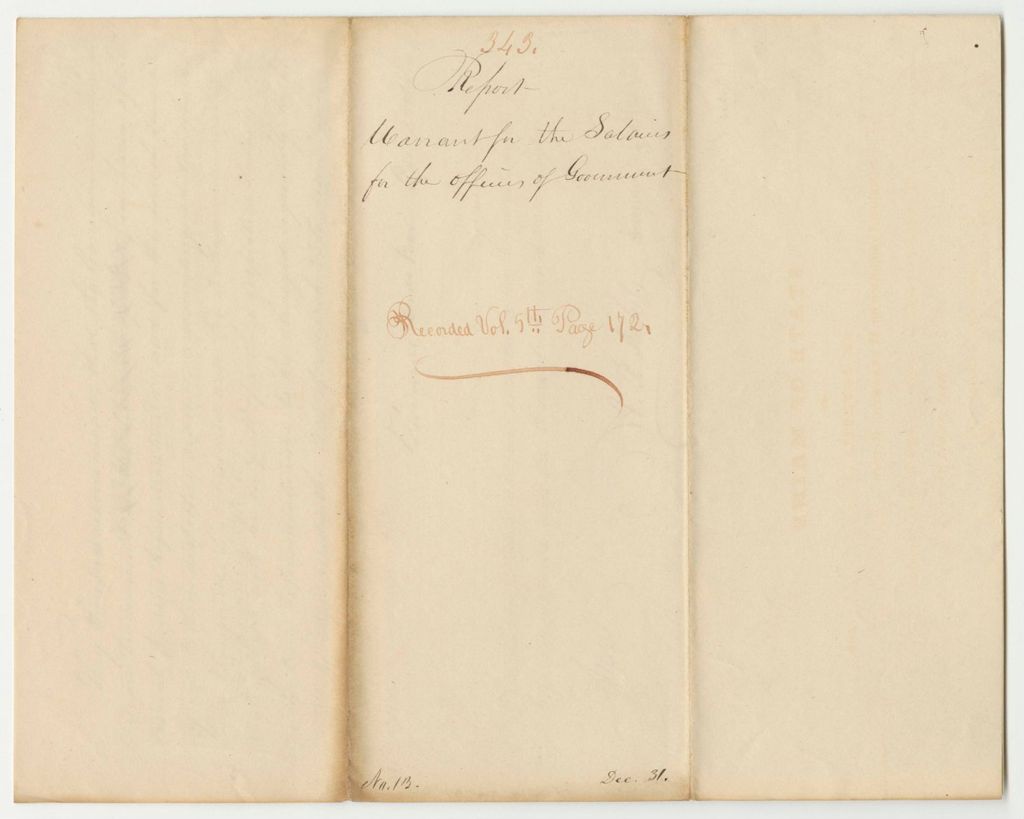 343.
Report
Warrant for the Salaries
for the officers of Government
Recorded Vol. 5th Page 172.
No. 13. Dec. 31.